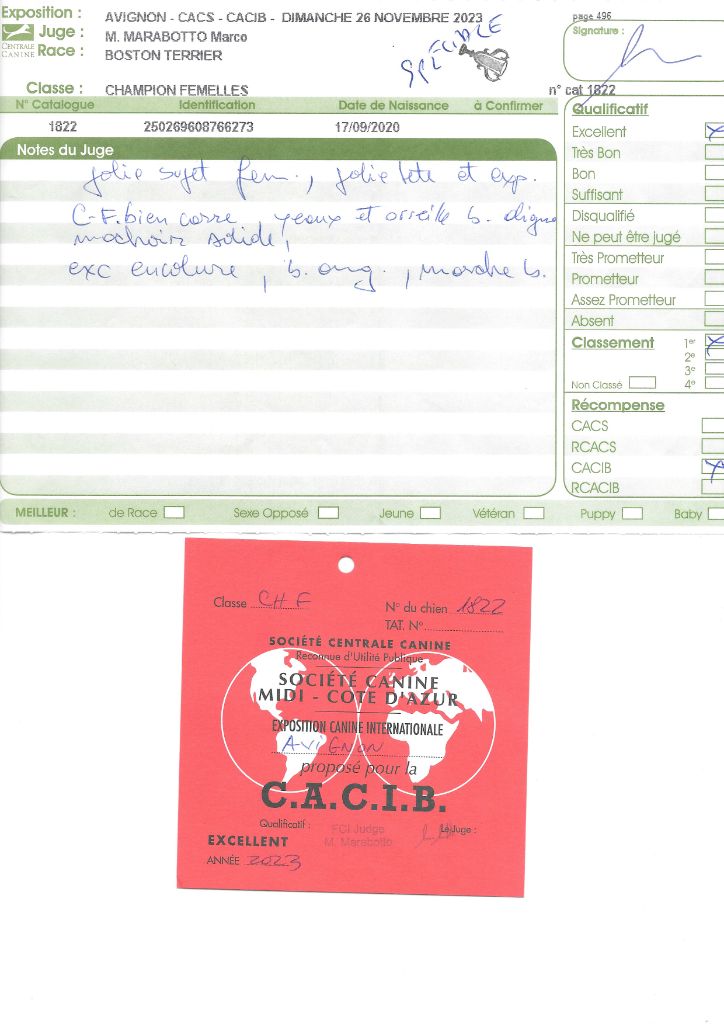 Exposition : AVIGNON - CACS - CACIB - DIMANCHE 26 NOVEMBRE 2023
Juge : M. MARABOTTO Marco
Race : BOSTON TERRIER
CENTRALE CANINE
SPECIALE
page 496
Signature :
Classe : CHAMPION FEMELLES
n° cat 1822
N° Catalogue Identification Date de Naissance à Confirmer
1822 250269608766273 17/09/2020
Notes du Juge
Jolie sujet fem., jolie tete et exp.
C-F. bien carre, yeaux et orseille b.
machoir solide,
exc encolure, b. ang., marche b.
Qualificatif
Excellent
Très Bon
Bon
Suffisant
Disqualifié
Ne peut être jugé
Très Prometteur
Prometteur
Assez Prometteur
Absent
Classement 1er
2e
3e
Non Classé 4e
Récompense
CACS
RCACS
CACIB
RCACIB
MEILLEUR : de Race Sexe Opposé Jeune Vétéran Puppy Baby
Classe CH F
N° du chien 1822
TAT. N°
SOCIÉTÉ CENTRALE CANINE
Reconnue d'Utilité Publique
SOCIÉTÉ CANINE
MIDI - COTE D'AZUR
EXPOSITION CANINE INTERNATIONALE
AVIGNON
proposé pour la
C.A.C.I.B.
Qualificatif :
EXCELLENT
FCI Judge
M. Marabotto
Le Juge :
ANNÉE 2023